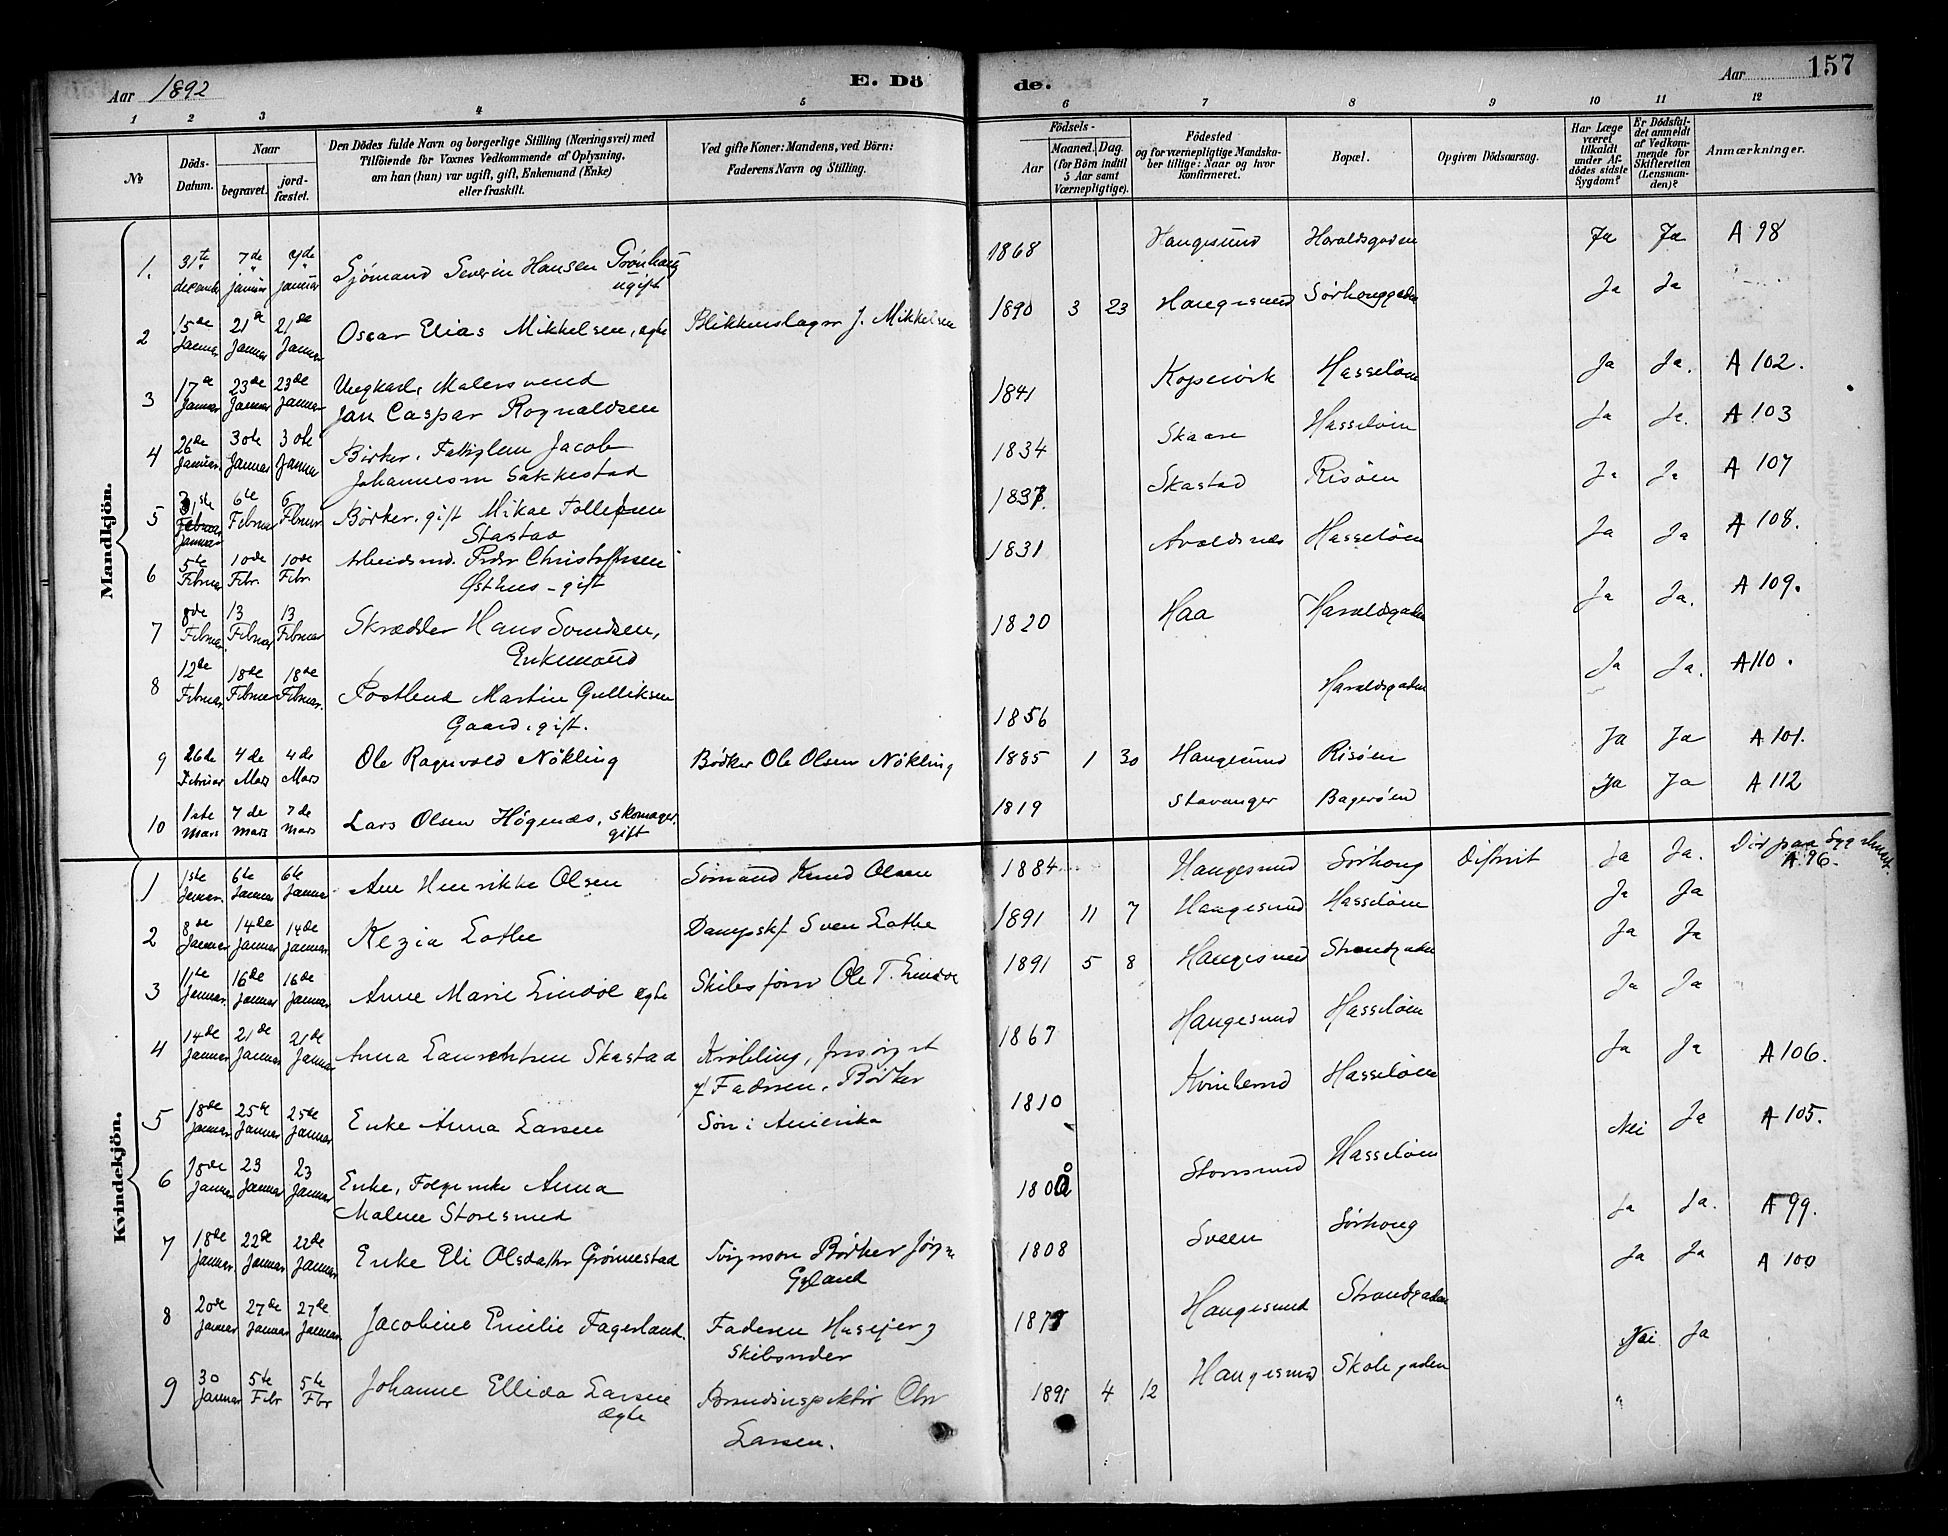 Aar 1892
E. Dö
de.
Aar
157
1 2 3 4 5 6 7 8 9 10 11 12
№
Döds-
Datum.
Naar
begravet.
jord-
fæstet.
Den Dödes fulde Navn og borgerlige Stilling (Næringsvei) med
Tilföiende for Voxnes Vedkommende af Oplysning,
om han (hun) var ugift, gift, Enkemand (Enke)
eller fraskilt.
Ved gifte Koner: Mandens, ved Börn:
Faderens Navn og Stilling.
Födsels-
Aar
Maaned. Dag.
(for Börn indtil
5 Aar samt
Værnepligtige).
Födested
og for værnepligtige Mandska-
ber tillige: Naar og hvor
konfirmeret.
Bopæl.
Opgiven Dödsaarsag.
Har Læge
været
tilkaldt
under Af-
dödes sidste
Sygdom?
Er Dödsfal-
det anmeldt
af Vedkom-
mende for
Skifteretten
(Lensman-
den)?
Anmærkninger.
Mandkjön.
1. 31te december 7de januar 7de januar Sjömand Severin Hansen Grönhaug ugift 1868 Haugesund Haraldsgaden Ja Ja A 98
2 15de Januar 21de Januar 21de Januar Oscar Elias Mikkelsen, ægte Blikkenslager J. Mikkelsen 1890 3 23 Haugesund Sørhauggaden Ja Ja
3 17de Januar 23de Januar 23de Januar Ungkarl, Malersvend
Jan Caspar Rognaldsen 1841 Kopervik Hasseløen Ja Ja. A 102.
4 26de Januar 30te Januar 30te Januar Bødker. Jacob
Johannesen Sakkestad 1834 Skaare Hasseløen Ja Ja. A 103
5 31ste Februar Januar 6te Februar 6 Februar Bødker. gift Mikal Tollefsen
Skastad 1837. Skastad Risøen Ja Ja A 107
6 5te Februar 10de Febr. 10de Febr Arbeidsmd. Peder Christoffersen
Østhus - gift 1831 Avaldsnes Hasseløen Ja Ja A 108.
7 8de Februar 13 Februar 13 Februar Skrædder Hans Svendsen,
Enkemand 1820 Haa Haraldsgaden Ja Ja. A 109.
8 12de Februar 18de Februar 18de Februar. Postbud Martin Gulliksen
Gaard, gift. 1856 Haraldsgaden Ja Ja. A 110.
9 26de Februar 4de Mars 4de Mars Ole Ragnvald Nökling Bødker Ole Olsen Nökling 1885 1 30 Haugesund Risøen Ja Ja A 101.
10 1ste Mars 7de Mars 7de Mars Lars Olsen Högenæs, skomager.
gift 1819 Stavanger Bagerøen Ja Ja A 112
Kvindekjön.
1 1ste Januar. 6te Januar 6te Januar Ane Henrikke Olsen Sömand Knud Olsen 1884 Haugesund Sørhaug Difterit Ja Ja. Död paa Sygehuset. A 96.
2 8de Januar 14de Januar 14de Januar Kezia Lothe Dampskf Sven Lothe 1891 11 7 Haugesund Hasseløen Ja Ja
3 11te Januar 16de Januar 16de Januar Anne Marie Lindøe ægte Skibsförer Ole T. Lindøe 1891 5 8 Haugesund Strandgaden Ja Ja
4 14de Januar 21de Januar 21de Januar Anna Skastad Krøbling, forsørget
af Faderen. Bødker 1867 Haugesund Hasseløen Ja Ja
5 18de Januar 25de Januar 25de Januar Enke Anna Larsen Søn i Amerika 1810 Hasseløen Ja Ja A 106.
6 18de Januar 23 Januar 23 Januar Enke, Anna
Malene Storesund Storesund Hasseløen Nei Ja A 105.
7 18de Januar. 22de Januar 22de Januar Enke Eli Olsdatter Grönnestad Svigersøn Bødker
1808 Sveen Sørhaug Ja Ja. A 99.
8 20de Januar 27de Januar 27de Januar. Jacobine Emilie Fagerland. Faderen Huseier og
Skibsreder Haugesund Strandgaden Ja Ja A 100
9 30 Januar 5te Febr 5te Febr Johanne Ellida Larsen
Ægte Brandinspektør Chr
Larsen. 1891 4 12 Haugesund Skolegaden Nei Ja